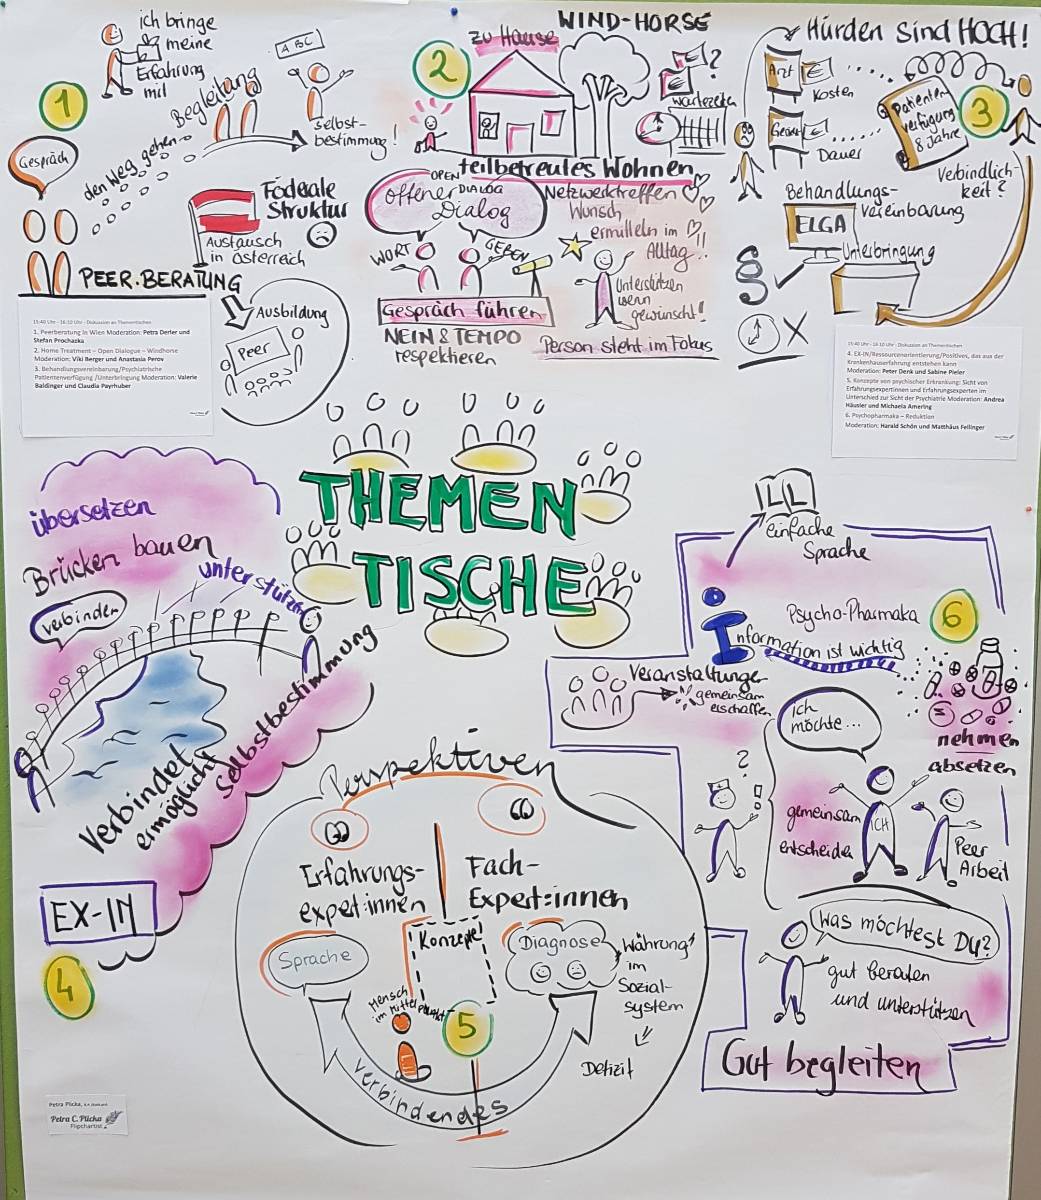 1
ich bringe
meine
Erfahrung
mit
ABC
Begleitung
selbst-
bestimmung!
Gespräch
den Weg gehen
Föderale
Struktur
Austausch
in Österreich
PEER-BERATUNG
Ausbildung
Peer
15:40 Uhr - 16:10 Uhr - Diskussion an Thementischen
1. Peerberatung in Wien Moderation: Petra Derler und
Stefan Prochazka
2. Home Treatment – Open Dialogue – Windhorse
Moderation: Viki Berger und Anastasia Perov
3. Behandlungsvereinbarung/Psychiatrische
Patientenverfügung /Unterbringung Moderation: Valerie
Baldinger und Claudia Payrhuber
2
WIND-HORSE
zu Hause
€ ?
€
wartezeiten
teilbetreutes Wohnen
OPEN
DIALOG
offener
Dialog
WORT
GEBEN
Netzwerktreffen
Wunsch
ermitteln im
Alltag..
Unterstützen
wenn
gewünscht!
Gespräch führen
NEIN & TEMPO
respektieren
Person steht im Fokus
3
Hürden sind HOCH!
Arzt
€
Kosten
Dauer
Patienten
verfügung
8 Jahre
Verbindlich-
keit?
Behandlungs-
vereinbarung
ELGA
Unterbringung
§
15:40 Uhr - 16:10 Uhr - Diskussion an Thementischen
4. EX-IN/Ressourcenorientierung/Positives, das aus der
Krankenhauserfahrung entstehen kann
Moderation: Peter Denk und Sabine Pieler
5. Konzepte von psychischer Erkrankung: Sicht von
Erfahrungsexpertinnen und Erfahrungsexperten im
Unterschied zur Sicht der Psychiatrie Moderation: Andrea
Häusler und Michaela Amering
6. Psychopharmaka – Reduktion
Moderation: Harald Schön und Matthäus Fellinger
THEMEN
TISCHE
übersetzen
Brücken bauen
unterstützen
verbinden
Verbindet
ermöglicht
Selbstbestimmung
EX-IN
4
Perspektiven
Erfahrungs-
expert:innen
Fach-
Expert:innen
Sprache
Konzepte!
Diagnose
"Währung"
im
Sozial-
system
Defizit
Mensch
im Mittelpunkt
5
verbindendes
einfache
Sprache
Psycho-Pharmaka
6
Information ist wichtig
Veranstaltungen
gemeinsam
erschaffen
nehmen
absetzen
ich
möchte...
?
gemeinsam
entscheiden
ICH
Peer
Arbeit
Was möchtest Du?
gut beraten
und unterstützen
Gut begleiten
Petra Plicka,
Petra C. Plicka
Flipchartist